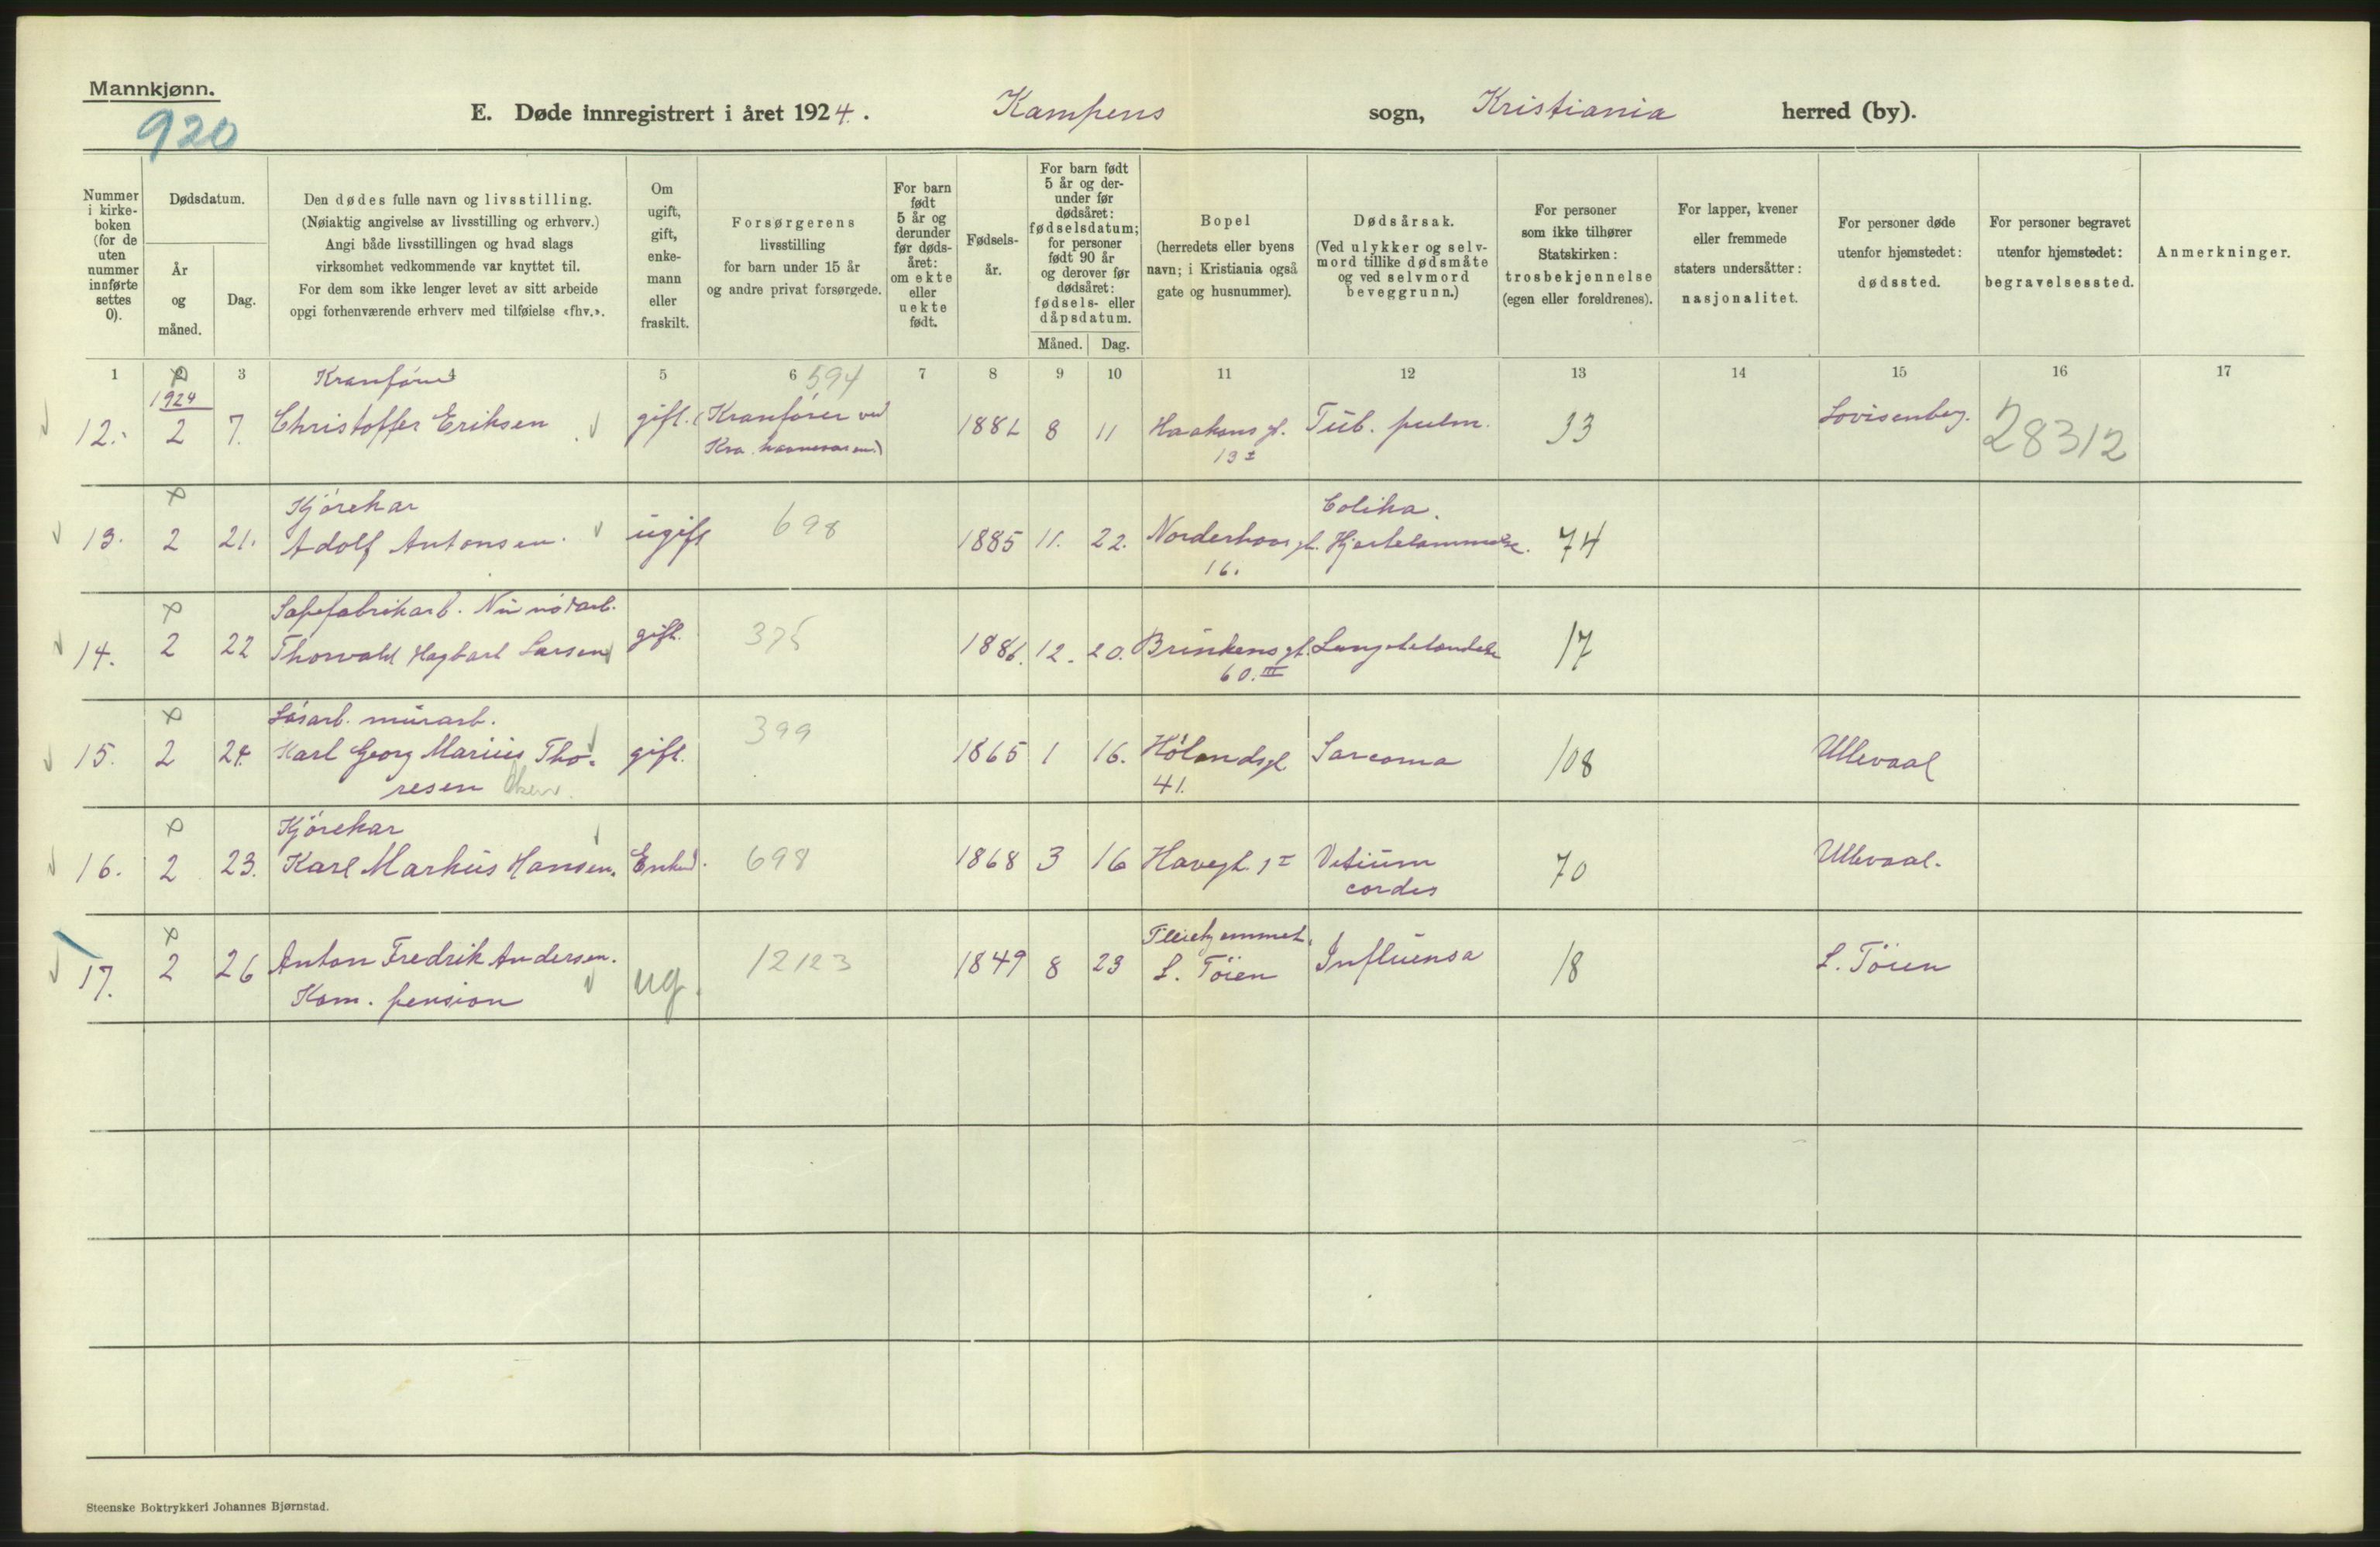 Mannkjønn.
920
E. Døde innregistrert i året 1924. Kampens sogn, Kristiania herred (by).
Nummer i kirkeboken (for de uten nummer innførte settes 0).
Dødsdatum.
År og måned.
Dag.
Den dødes fulle navn og livsstilling.
(Nøiaktig angivelse av livsstilling og erhverv.)
Angi både livsstillingen og hvad slags
virksomhet vedkommende var knyttet til.
For dem som ikke lenger levet av sitt arbeide
opgi forhenværende erhverv med tilføielse «fhv.».
Om ugift, gift, enkemann eller fraskilt.
Forsørgerens
livsstilling
for barn under 15 år
og andre privat forsørgede.
For barn født 5 år og derunder før dødsåret: om ekte eller uekte født.
Fødselsår.
For barn født 5 år og derunder før dødsåret: fødselsdatum; for personer født 90 år og derover før dødsåret: fødsels- eller dåpsdatum.
Måned. Dag.
Bopel
(herredets eller byens
navn; i Kristiania også
gate og husnummer).
Dødsårsak.
(Ved ulykker og selvmord tillike dødsmåte
og ved selvmord
beveggrunn.)
For personer
som ikke tilhører
Statskirken:
trosbekjennelse
(egen eller foreldrenes).
For lapper, kvener
eller fremmede
staters undersåtter:
nasjonalitet.
For personer døde
utenfor hjemstedet:
dødssted.
For personer begravet
utenfor hjemstedet:
begravelsessted.
Anmerkninger.
1 2 3 4 5 6 7 8 9 10 11 12 13 14 15 16 17
Kranfører 594
1924
12. 2 7. Christoffer Eriksen gift. (Kranfører ved 8 11 Haakons gt. Tüb. pulm. 33 Lovisenberg. 28312
Kra. 13 I
Kjörekar Colika.
13. 2 21. Adolf Antonsen. ugift 698 1885 11. 22. Norderhovs gt. Hjertelammelse. 74
16.
Sæpefabrikarb. Nu nödarb.
14. 2 22 Thorvald Hagbart Larsen gift. 375 1886. 12. 20. Brinkens gt. Lungebetændelse 17
60. III
Løsarb. murarb.
15. 2 24. Karl Georg Marius Tho- gift. 399 1865 1 16. Hölandsgt. Sarcoma 108 Ullevaal
resen 41.
Kjörekar
16. 2 23. Karl Markus Hansen. Enkem. 698 1868 3 16 Havegt. 1 I Vitium 70 Ullevaal.
cordis
Pleiehjemmet.
17. 2 26 Anton Fredrik Andersen. ug. 12123 1849 8 23 L. Töien Influensa 18 L. Töien
Kom. pension
Steenske Boktrykkeri Johannes Bjørnstad.